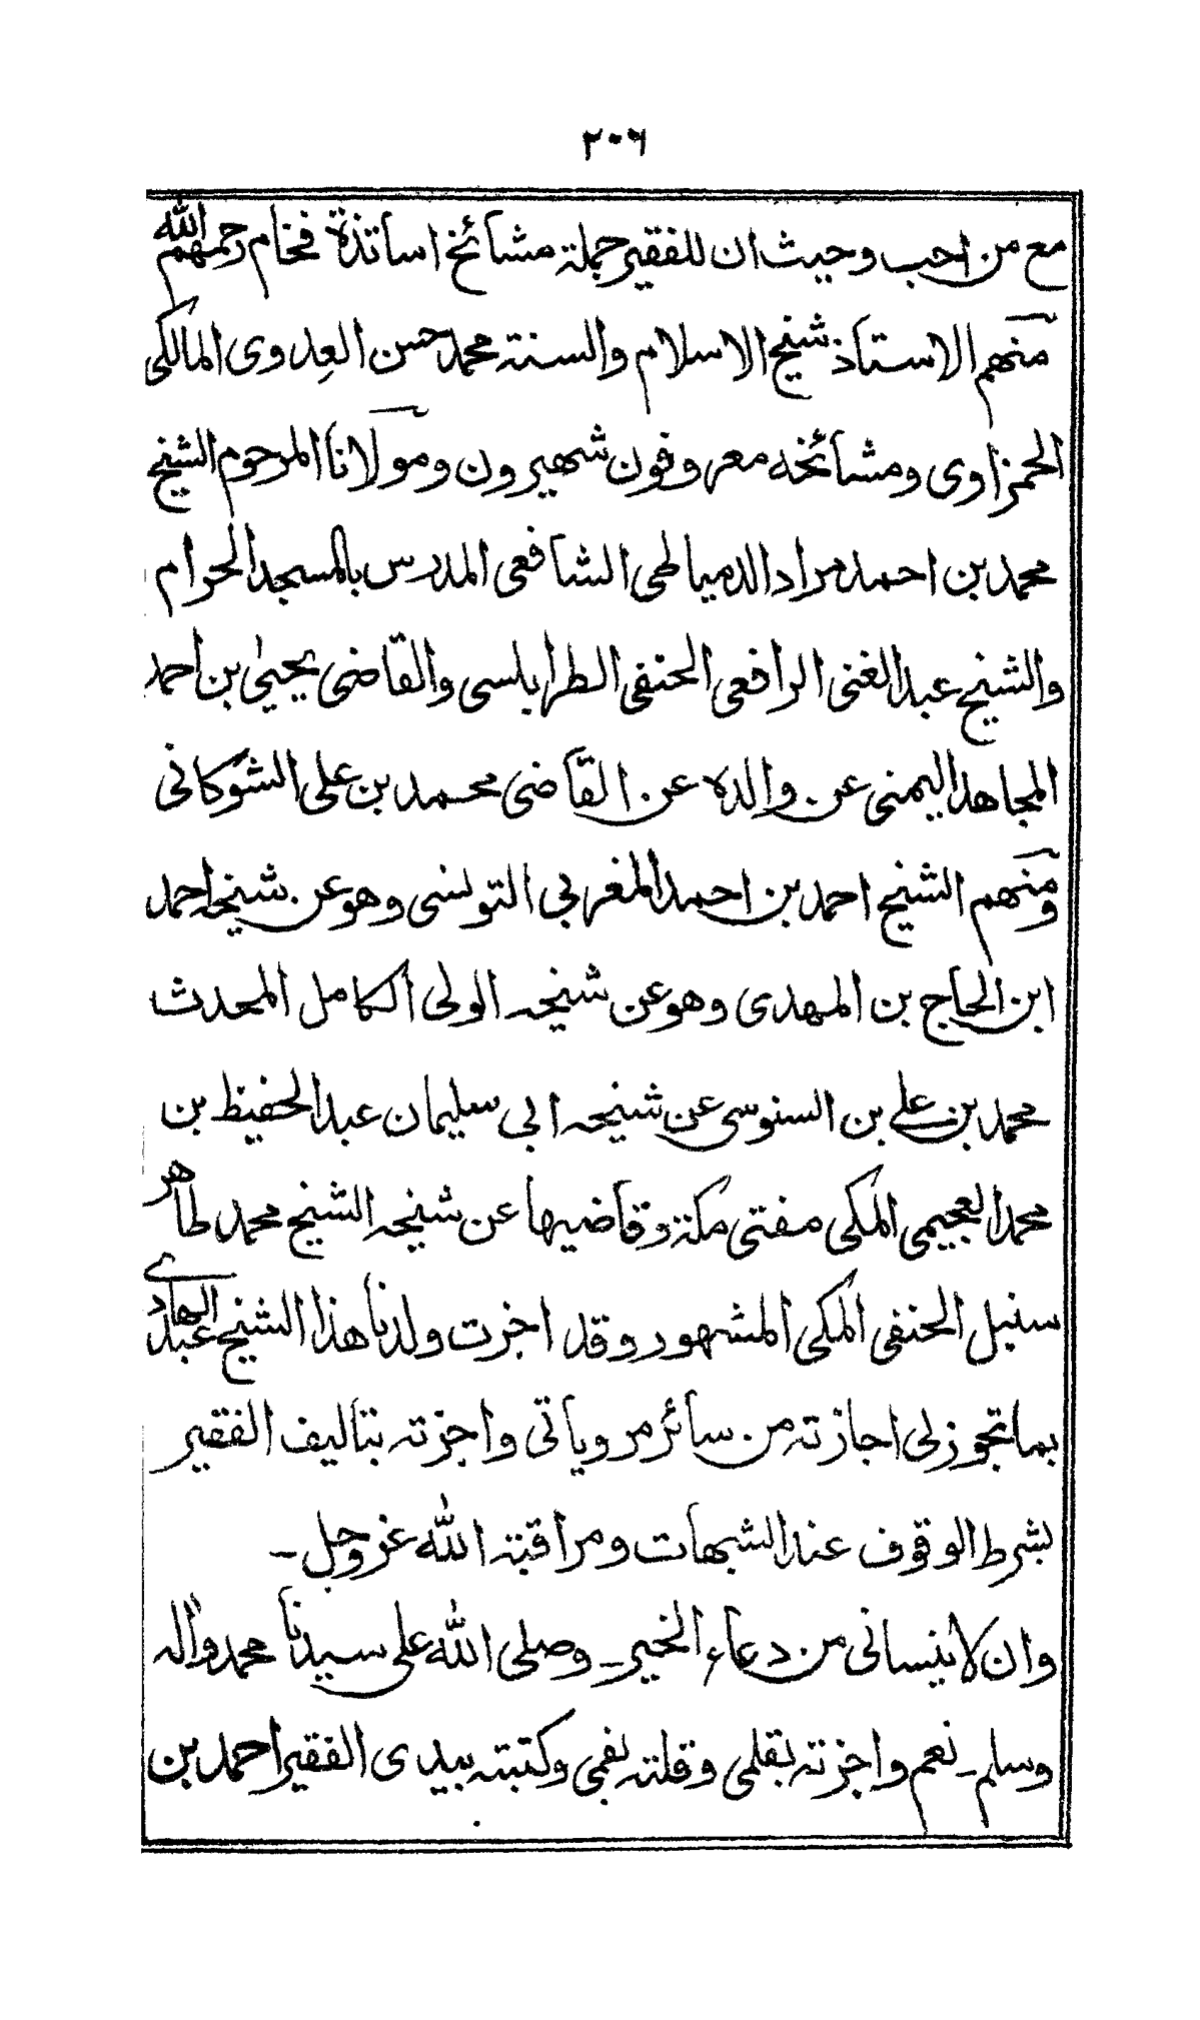 ٢٠٦
مع من احب وحيث ان للفقير جملة مشائخ اساتذة فخام رحمهم الله
منهم الاستاذ شيخ الاسلام والسنة محمد حسن العِدوى المالكى
الحمزاوى ومشائخه معروفون شهيرون ومولانا المرحوم الشيخ
محمد بن احمد مراد الدمياطى الشافعى المدرس بالمسجد الحرام
والشيخ عبد الغنى الرافعى الحنفى الطرابلسى والقاضى يحيىٰ بن احمد
المجاهد اليمنى عن والده عن القاضى محمد بن على الشوكانى
ومنهم الشيخ احمد بن احمد المغربي التونسى وهو عن شيخه احمد
ابن الحاج بن المهدى وهو عن شيخه الولى الكامل المحدث
محمد بن علي بن السنوسى عن شيخه ابى سليمان عبد الحفيظ بن
محمد العجيمى المكى مفتى مكة وقاضيها عن شيخه الشيخ محمد طاهر
سنبل الحنفى المكى المشهور وقد اخرت ولدنا هذا الشيخ عبد الهادي
بما تجوز لى اجازته من سائر مروياتى واجزته بتاليف الفقير
بشرط الوقوف عند الشبهات ومراقبة الله عز وجل ۔
وان لا ينسانى من دعاء الخير ۔ وصلى الله على سيدنا محمد واٰله
وسلم ۔ نعم واجزته بقلمى وقلته بفمى وكتبته بيدى الفقير احمد بن